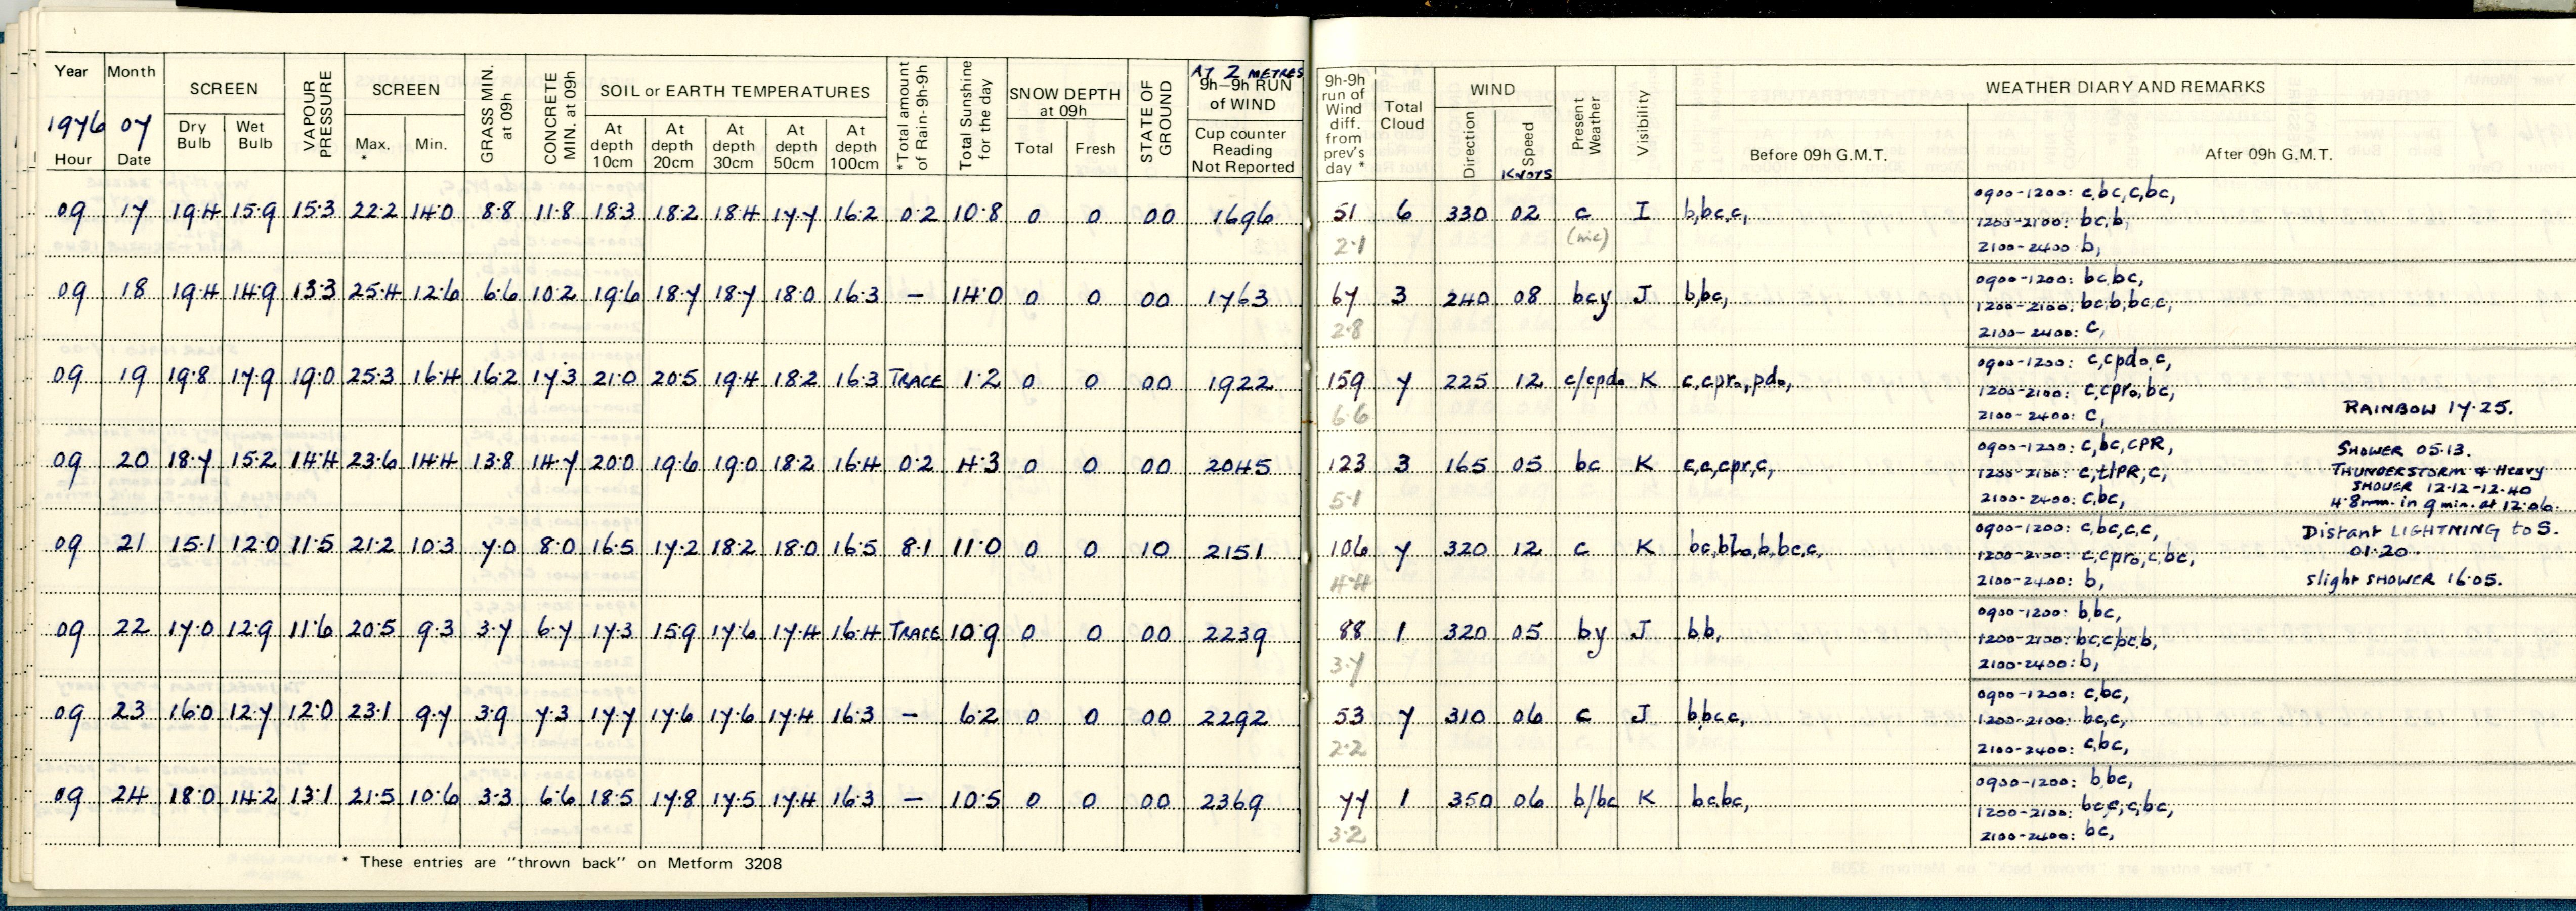 Year Month SCREEN VAPOUR PRESSURE SCREEN GRASS MIN. at 09h CONCRETE MIN. at 09h SOIL or EARTH TEMPERATURES *Total amount of Rain-9h-9h Total Sunshine for the day SNOW DEPTH at 09h STATE OF GROUND AT 2 METRES 9h-9h RUN of WIND
1976 07 Dry Bulb Wet Bulb Max. * Min. At depth 10cm At depth 20cm At depth 30cm At depth 50cm At depth 100cm Total Fresh Cup counter Reading Not Reported
Hour Date
9h-9h run of Wind diff. from prev's day * Total Cloud WIND Direction Speed KNOTS Present Weather Visibility WEATHER DIARY AND REMARKS
Before 09h G.M.T. After 09h G.M.T.
09 17 19.4 15.9 15.3 22.2 14.0 8.8 11.8 18.3 18.2 18.4 17.7 16.2 0.2 10.8 0 0 00 1696 51 6 330 02 c I b,bc,c, 0900-1200: c,bc,c,bc,
2.1 (nic) 1200-2100: bc,b,
2100-2400: b,
09 18 19.4 14.9 13.3 25.4 12.6 6.6 10.2 19.6 18.7 18.7 18.0 16.3 — 14.0 0 0 00 1763 67 3 240 08 bcy J b,bc, 0900-1200: bc,bc,
2.8 1200-2100: bc,b,bc,c,
2100-2400: c,
09 19 19.8 17.9 19.0 25.3 16.4 16.2 17.3 21.0 20.5 19.4 18.2 16.3 TRACE 1.2 0 0 00 1922 159 7 225 12 c/cpdo K c,cpro,pdo, 0900-1200: c,cpdo,c,
6.6 1200-2100: c,cpro,bc,
2100-2400: c, RAINBOW 17.25.
09 20 18.7 15.2 14.4 23.6 14.4 13.8 14.7 20.0 19.6 19.0 18.2 16.4 0.2 4.3 0 0 00 2045 123 3 165 05 bc K c,c,cpr,c, 0900-1200: c,bc,cPR, SHOWER 05.13.
5.1 1200-2100: c,tlPR,c, THUNDERSTORM & Heavy
SHOWER 12.12-12.40
2100-2400: c,bc, 4.8mm. in 9 min. at 12.06.
09 21 15.1 12.0 11.5 21.2 10.3 7.0 8.0 16.5 17.2 18.2 18.0 16.5 8.1 11.0 0 0 10 2151 106 7 320 12 c K bc,blo,b,bc,c, 0900-1200: c,bc,c,c, Distant LIGHTNING to S.
01.20.
4.4 1200-2100: c,cpro,c,bc,
2100-2400: b, slight SHOWER 16.05.
09 22 17.0 12.9 11.6 20.5 9.3 3.7 6.7 17.3 15.9 17.6 17.4 16.4 TRACE 10.9 0 0 00 2239 88 1 320 05 by J b,b, 0900-1200: b,bc,
3.7 1200-2100: bc,c,bc,b,
2100-2400: b,
09 23 16.0 12.7 12.0 23.1 9.7 3.9 7.3 17.7 17.6 17.6 17.4 16.3 — 6.2 0 0 00 2292 53 7 310 06 c J b,bc,c, 0900-1200: c,bc,
2.2 1200-2100: bc,c,
2100-2400: c,bc,
09 24 18.0 14.2 13.1 21.5 10.6 3.3 6.6 18.5 17.8 17.5 17.4 16.3 — 10.5 0 0 00 2369 77 1 350 06 b/bc K bc,bc, 0900-1200: b,bc,
3.2 1200-2100: bc,c,c,bc,
2100-2400: bc,
* These entries are "thrown back" on Metform 3208